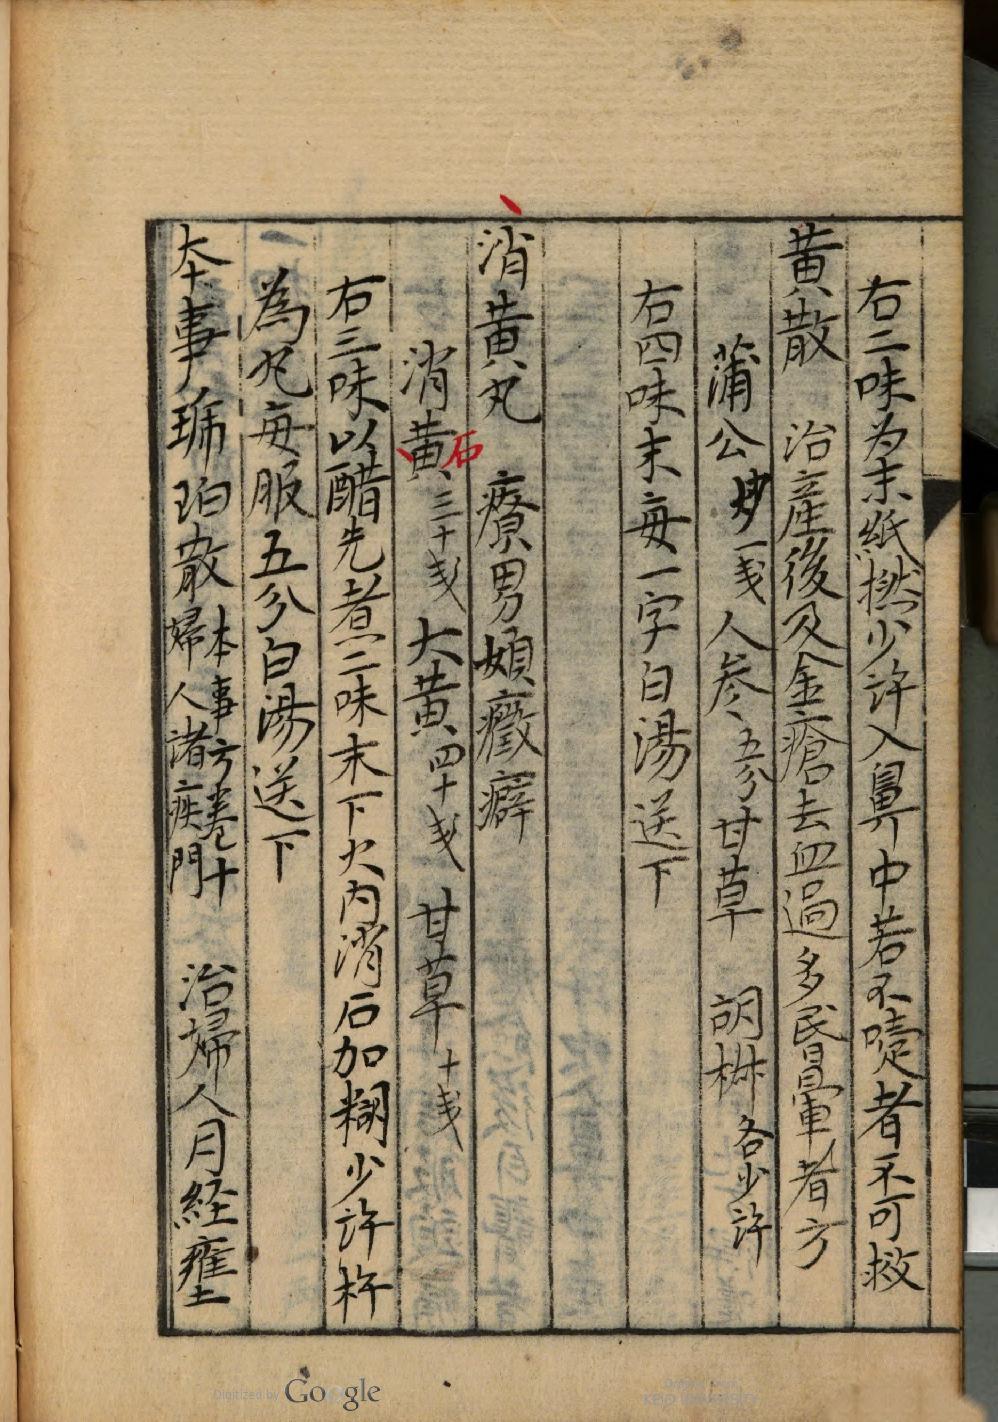 右二味为末紙撚少許入鼻中若不嚏者不可救
黄散 治產後及金瘡去血過多昏暈者方
蒲公炒一戔人参五分甘草 胡椒各少許
右四味末每一字白湯送下
消黄丸 療男婦癥癖
消黄石三十戔大黄四十戔 甘草十戔
右三味以醋先煮二味末下火内消石加糊少許杵
為丸每服五分白湯送下
本事琥珀散本事方卷十婦人諸疾門 治婦人月経壅
Digitized by Google
Original from
KEIO UNIVERSITY